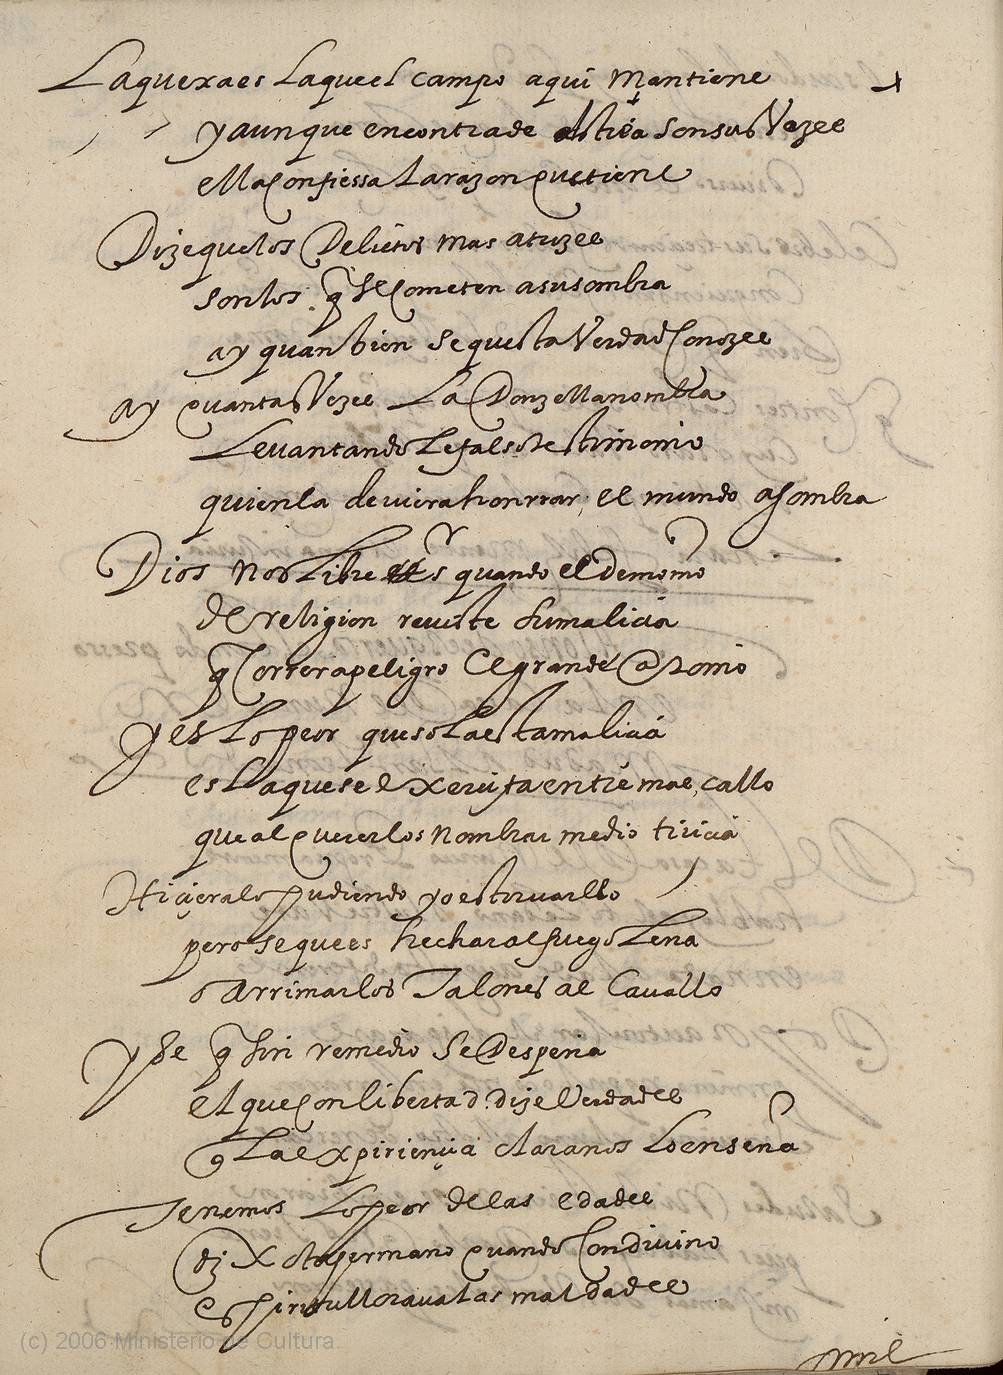 La quexa es la que el campo aqui mantiene
y aunque encontra de astrea son sus Vozes
ella confiessa la razon que tiene
Dize que los Delictos mas atrozes
son los q se cometen a su sombra
ay quan bien se que esta Verdad Conozes
ay quantas Vezes La Donzella nombra
Levantandole falso testimonio
quien la deviera honrrar, el mundo asombra
Dios nos Libre quando el demonio
de religion reviste su malicia
q correra peligro el grande Antonio
y es lo peor que sola esta malicia
es la que se exercita entre mas, callo
que al quererlos nombrar me dio tiricia
Hicieralo pudiendo yo estorvarllo
pero se que es hechar al fuego Leña
o arrimar los Talones al Cavallo
y se q sin remedio se Despeña
el que con libertad dize Verdades
q La expiriencia claro nos lo enseña
Tenemos Lo peor de las edades
diz X oto germano quando Con divino
espiritu llorava las maldades
mil
(c) 2006 Ministerio de Cultura